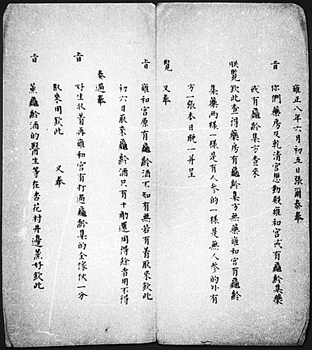 雍正八年六月初五日張爾泰奉
旨你們藥房及乾清宮思勤殿雍和宮或有龜齡集藥
或有龜齡集方查來
欽此查得藥房有龜齡集方無藥雍和宮有龜齡
集藥兩樣一樣是有人參的一樣是無人參的外有
方一張本日晚一并呈
覽又奉
旨雍和宮原有龜齡酒不知有無若有着取來欽此
初六日取來龜齡酒只有十觔還用得除音用不得
奏過奉
旨好生收着再雍和宮有打過龜齡集的全傢伙一分
取來用欽此又奉
旨蒸龜齡酒的醫生等在杏花村再邊蒸好欽此